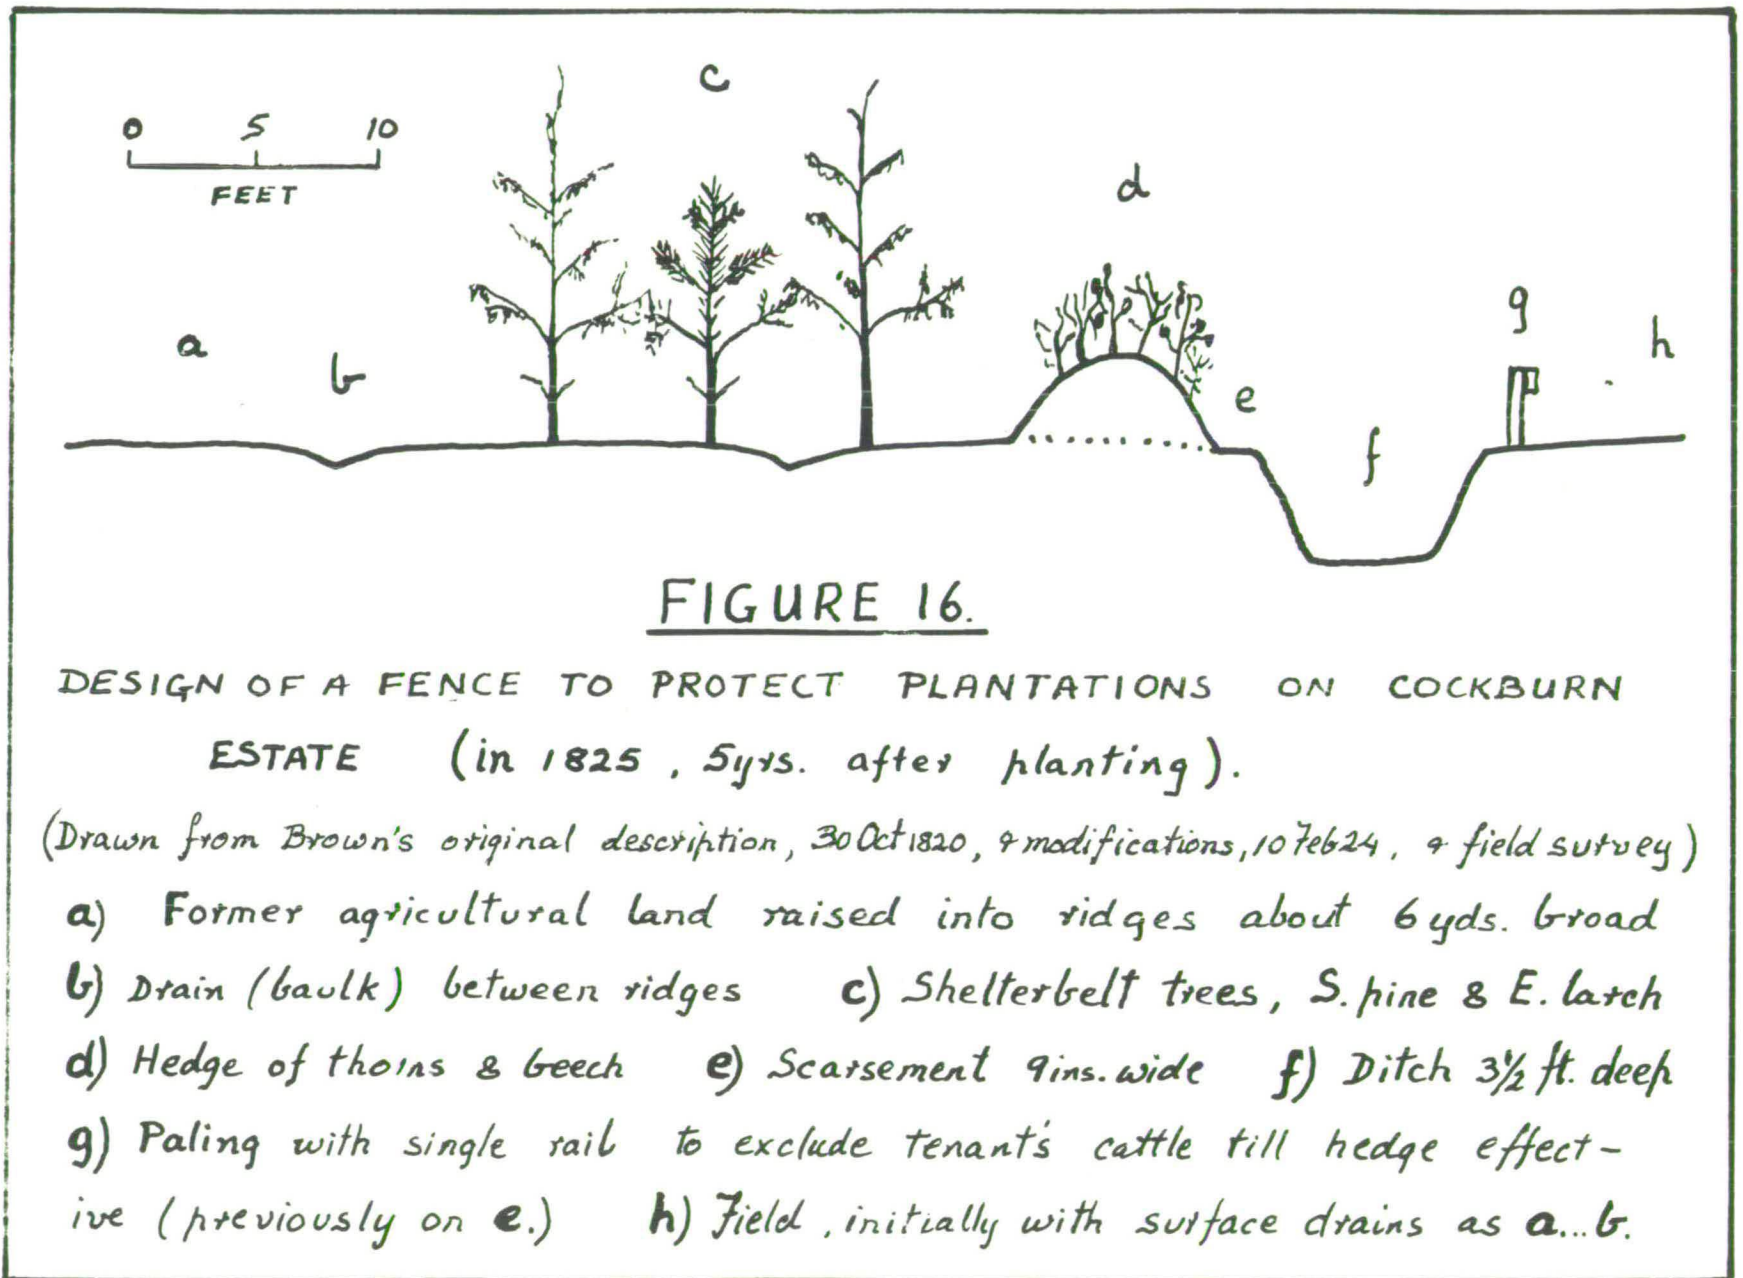 c
0 5 10
FEET
d
a
b
g
h
e
f
FIGURE 16.
DESIGN OF A FENCE TO PROTECT PLANTATIONS ON COCKBURN
ESTATE (in 1825, 5yrs. after planting).
(Drawn from Brown's original description, 30 Oct 1820, & modifications, 10 Feb 24, & field survey)
a) Former agricultural land raised into ridges about 6 yds. broad
b) Drain (baulk) between ridges c) Shelterbelt trees, S. pine & E. larch
d) Hedge of thorns & beech e) Scarsement 9ins. wide f) Ditch 3½ ft. deep
g) Paling with single rail to exclude tenant's cattle till hedge effect-
ive (previously on e.) h) Field, initially with surface drains as a...b.